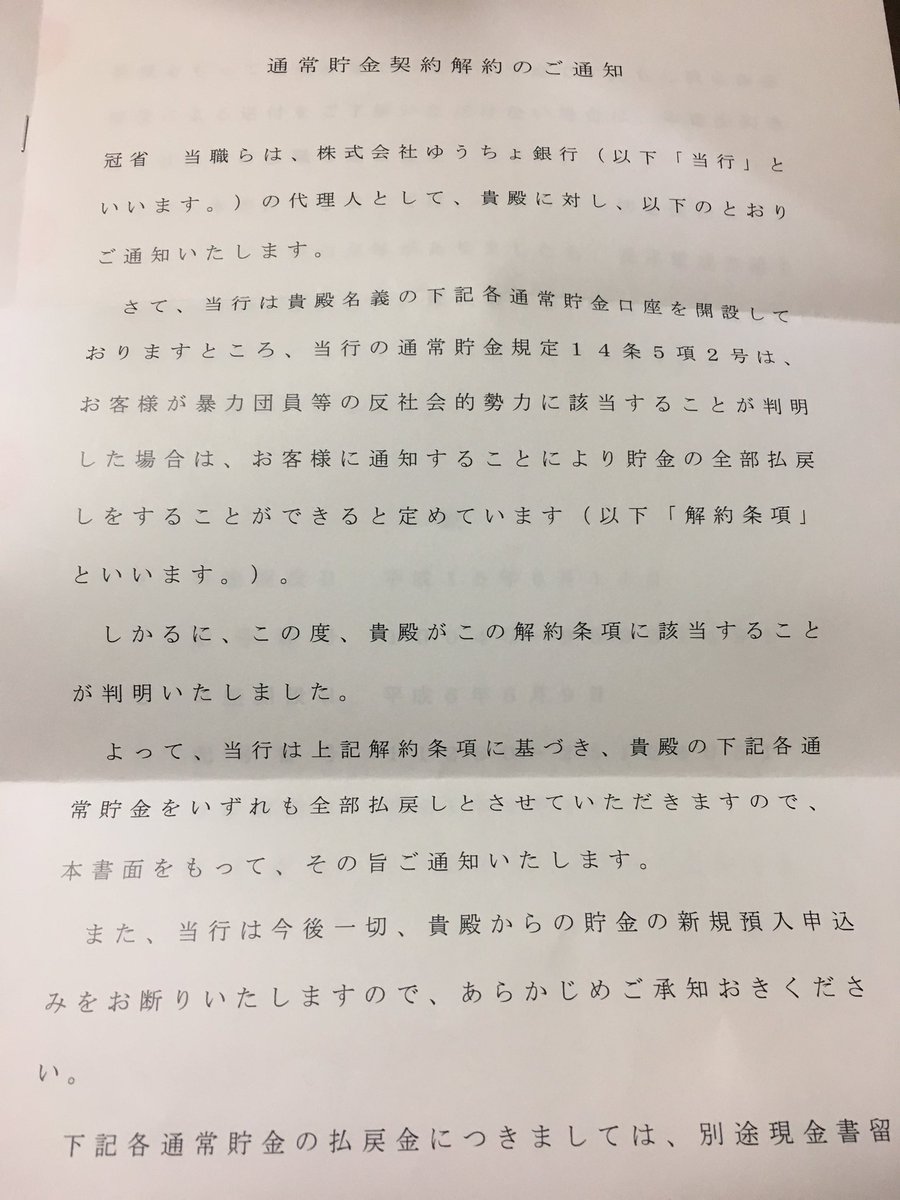 通常貯金契約解約のご通知
冠省　当職らは、株式会社ゆうちょ銀行（以下「当行」と
いいます。）の代理人として、貴殿に対し、以下のとおり
ご通知いたします。
さて、当行は貴殿名義の下記各通常貯金口座を開設して
おりますところ、当行の通常貯金規定１４条５項２号は、
お客様が暴力団員等の反社会的勢力に該当することが判明
した場合は、お客様に通知することにより貯金の全部払戻
しをすることができると定めています（以下「解約条項」
といいます。）。
しかるに、この度、貴殿がこの解約条項に該当すること
が判明いたしました。
よって、当行は上記解約条項に基づき、貴殿の下記各通
常貯金をいずれも全部払戻しとさせていただきますので、
本書面をもって、その旨ご通知いたします。
また、当行は今後一切、貴殿からの貯金の新規預入申込
みをお断りいたしますので、あらかじめご承知おきくださ
い。
下記各通常貯金の払戻金につきましては、別途現金書留